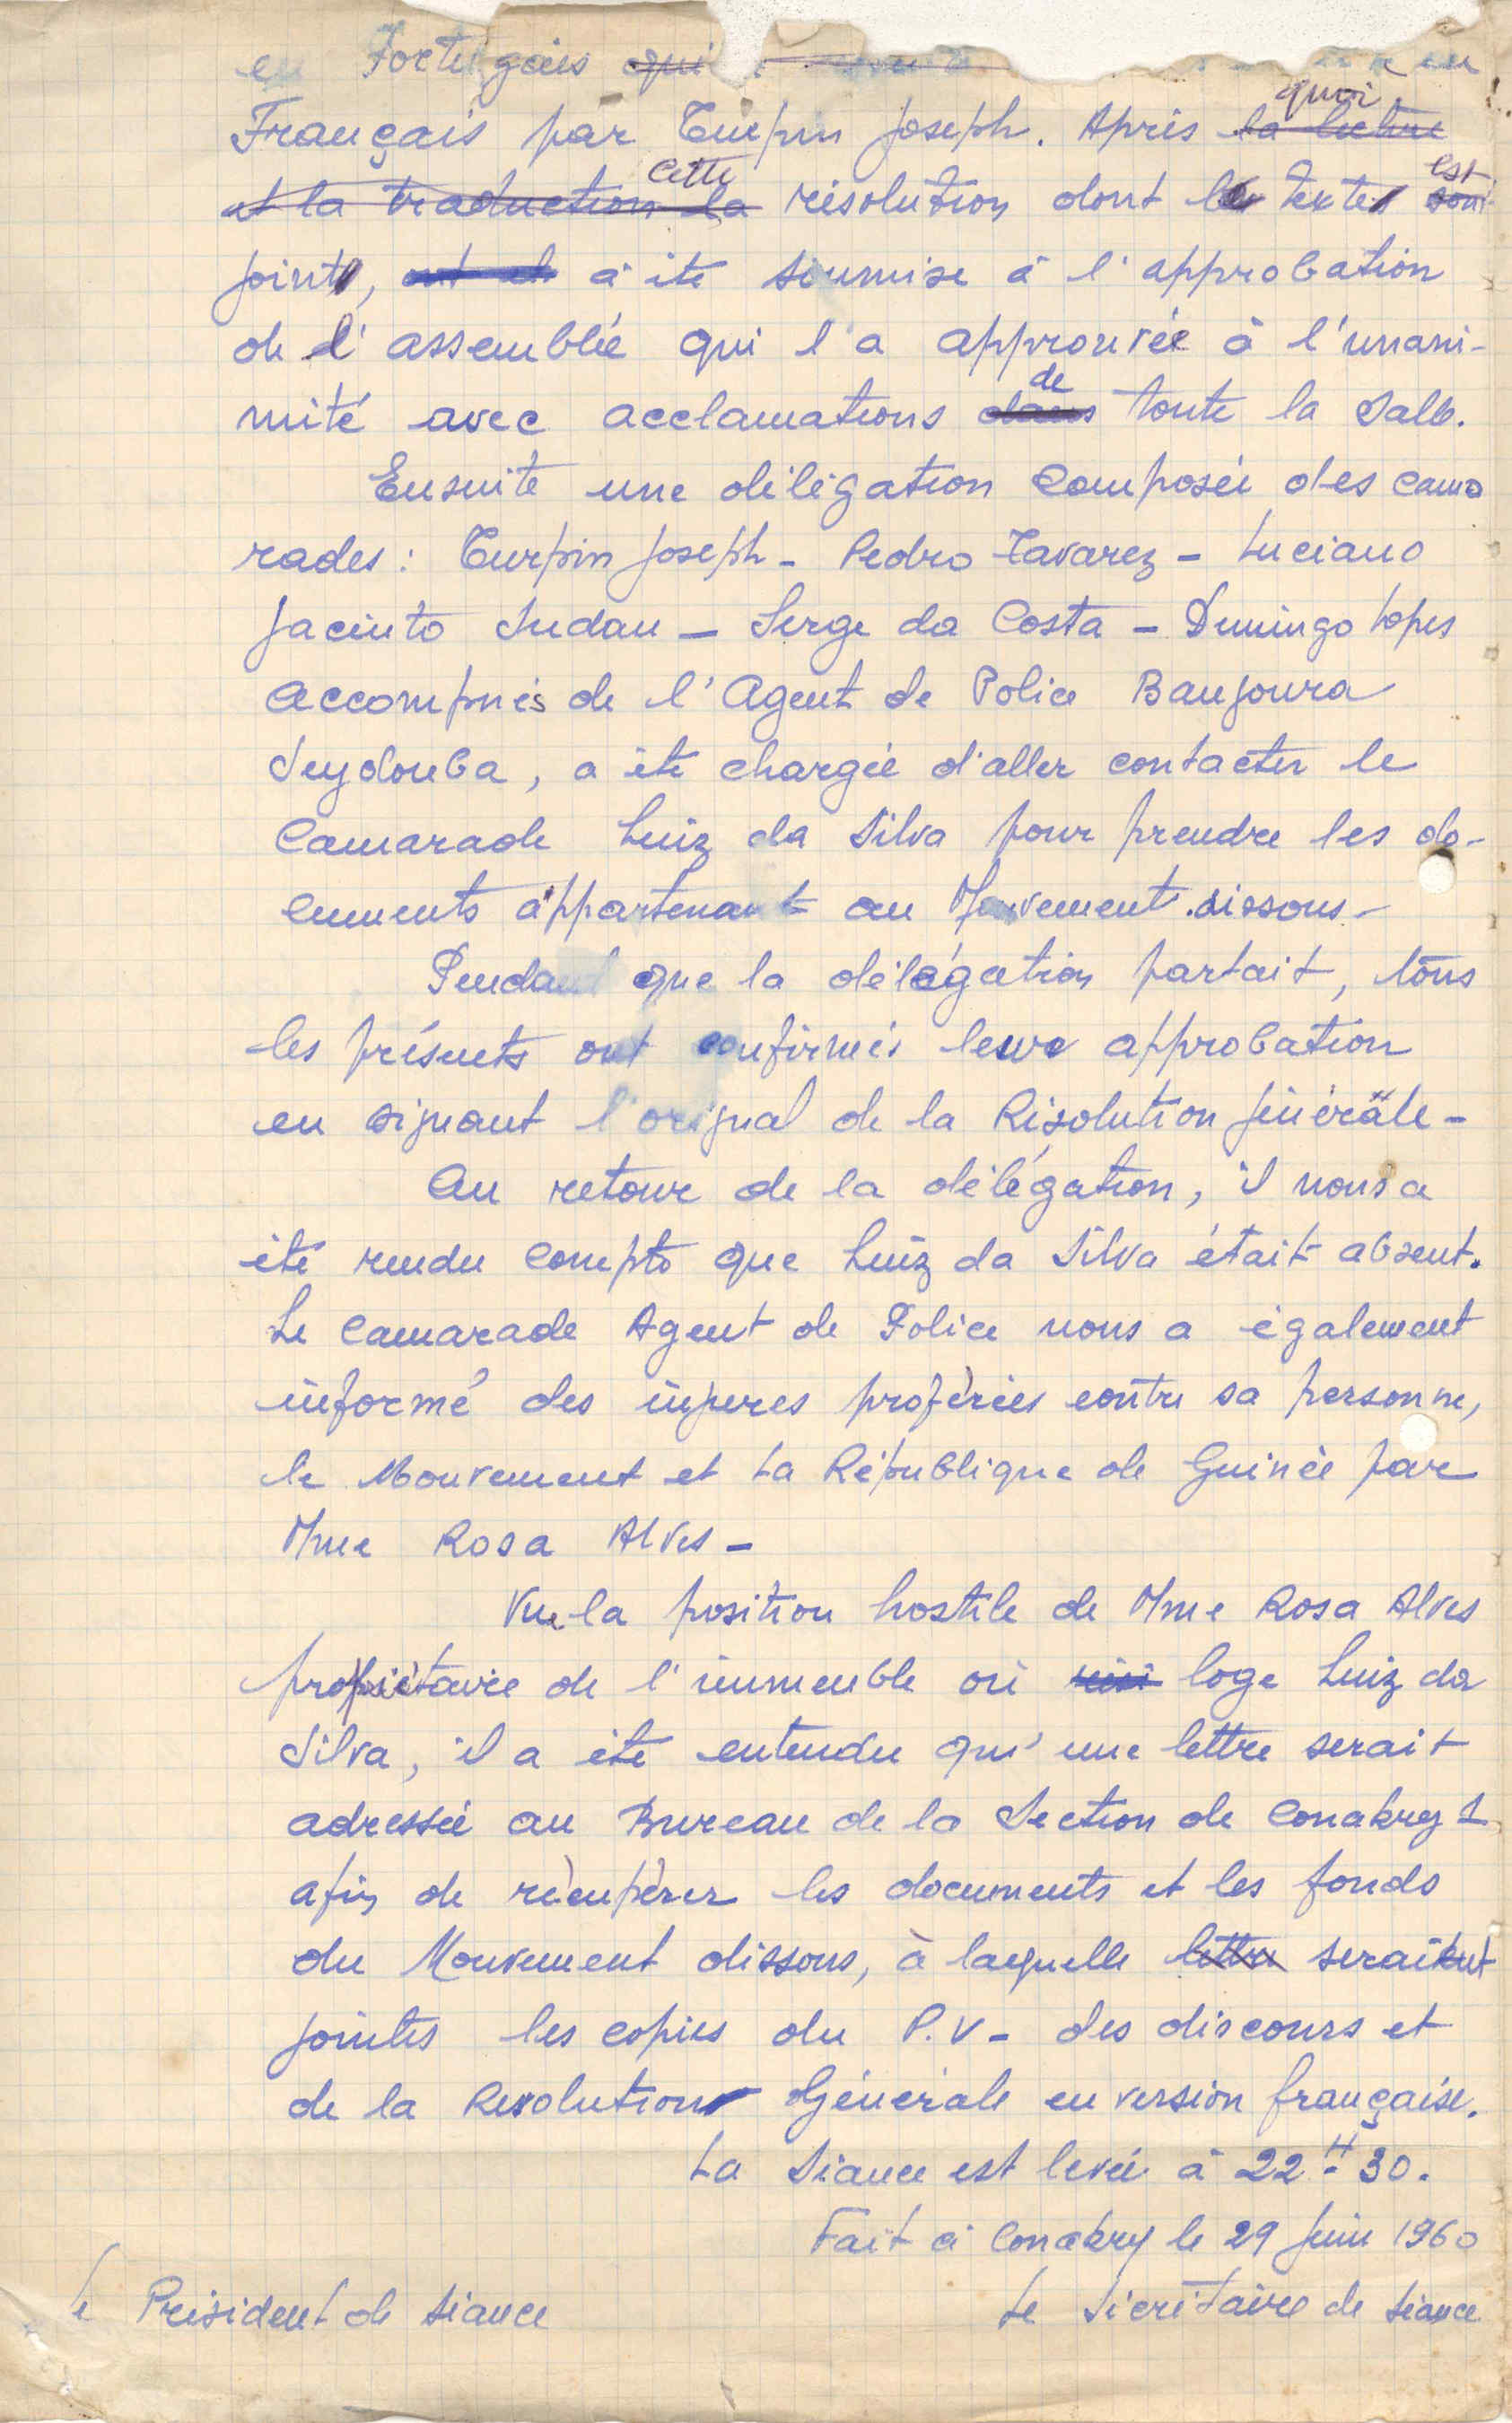 en Portugais qui
quoi
Français par Turpin Joseph. Après la lecture
cette est
et la traduction la résolution dont le texte sont
joint, ont et a été soumise à l'approbation
de l'assemblée qui l'a approuvée à l'unani-
de
mité avec acclamations dans toute la salle.
Ensuite une délégation composée des cama
rades : Turpin Joseph - Pedro Tavarez - Luciano
Jacinto Sudau - Serge da Costa - Dumingo Lopes
accompnés de l'Agent de Police Bangoura
Seydouba, a été chargée d'aller contacter le
Camarade Luiz da Silva pour prendre les do-
cuments appartenant au Mouvement dissous-
Pendant que la délégation partait, tous
les présents ont confirmés leur approbation
en signant l'orignal de la Résolution générale -
Au retour de la délégation, il nous a
été rendu compte que Luiz da Silva était absent.
Le Camarade Agent de Police nous a également
informé des injures proférées contre sa personne,
le Mouvement et la République de Guinée par
Mme Rosa Alves -
Vue la position hostile de Mme Rosa Alves
propriétaire de l'immeuble où loge Luiz da
Silva, il a été entendu qu'une lettre serait
adressée au Bureau de la Section de Conakry I
afin de récupérer les documents et les fonds
du Mouvement dissous, à laquelle lettre seraient
jointes les copies du P.V - des discours et
de la Resolution Générale en version française.
La Séance est levée à 22 H 30.
Fait à Conakry le 29 Juin 1960
Le Président de séance Le Sécrétaire de séance